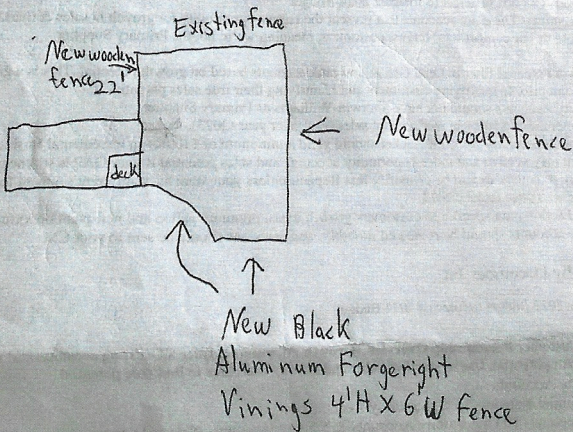 Existing fence
New wooden
fence 22'
New wooden fence
deck
New Black
Aluminum Forgeright
Vinings 4'H X 6'W fence